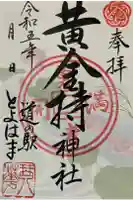 奉拝
黄金持神社
令和五年
月　日
道の駅
とよはま